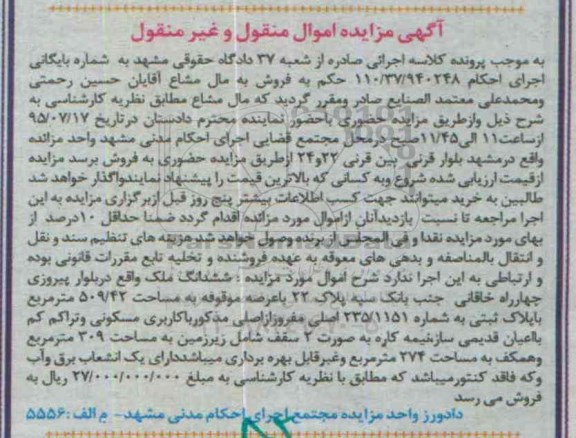 آگهی مزایده اموال منقول و غیر منقول
به موجب پرونده کلاسه اجرائی صادره از شعبه ۳۷ دادگاه حقوقی مشهد به شماره بایگانی
اجرای احکام ۱۱۰/۳۷/۹۴۰۲۴۸ حکم به فروش به مال مشاع آقایان حسین رحمتی
ومحمدعلی معتمد الصنایع صادر ومقرر گردید که مال مشاع مطابق نظریه کارشناسی به
شرح ذیل وازطریق مزایده حضوری باحضور نماینده محترم دادستان درتاریخ ۹۵/۰۷/۱۷
ازساعت۱۱ الی۱۱/۴۵صبح درمحل مجتمع قضایی اجرای احکام مدنی مشهد واحد مزائده
واقع درمشهد بلوار قرنی بین قرنی ۲۲و۲۴ ازطریق مزایده حضوری به فروش برسد مزایده
ازقیمت ارزیابی شده شروع وبه کسانی که بالاترین قیمت را پیشنهاد نمایندواگذار خواهد شد
طالبین به خرید میتوانند جهت کسب اطلاعات بیشتر پنج روز قبل ازبرگزاری مزایده به این
اجرا مراجعه تا نسبت بازدیدآنان ازاموال مورد مزائده اقدام گردد ضمنا حداقل ۱۰درصد از
بهای مورد مزایده نقدا و فی المجلس از برنده وصول خواهد شد هزینه های تنظیم سند و نقل
و انتقال بالمناصفه و بدهی های معوقه به عهده فروشنده و تخلیه تابع مقررات قانونی بوده
و ارتباطی به این اجرا ندارد شرح اموال مورد مزایده : ششدانگ ملک واقع دربلوار پیروزی
چهارراه خاقانی جنب بانک سپه پلاک ۲۲ باعرصه موقوفه به مساحت ۵۰۹/۴۲ مترمربع
باپلاک ثبتی به شماره ۲۳۵/۱۱۵۱ اصلی مفروزازاصلی مذکورباکاربری مسکونی وتراکم کم
بااعیان قدیمی سازنیمه کاره به صورت ۲ سقف شامل زیرزمین به مساحت ۳۰۹ مترمربع
وهمکف به مساحت ۲۷۴ مترمربع وغیرقابل بهره برداری میباشددارای یک انشعاب برق وآب
وکه فاقد کنتورمیباشد که مطابق با نظریه کارشناسی به مبلغ ۲۷/۰۰۰/۰۰۰/۰۰۰ ریال به
فروش می رسد
دادورز واحد مزایده مجتمع اجرای احکام مدنی مشهد- م الف :۵۵۵۶